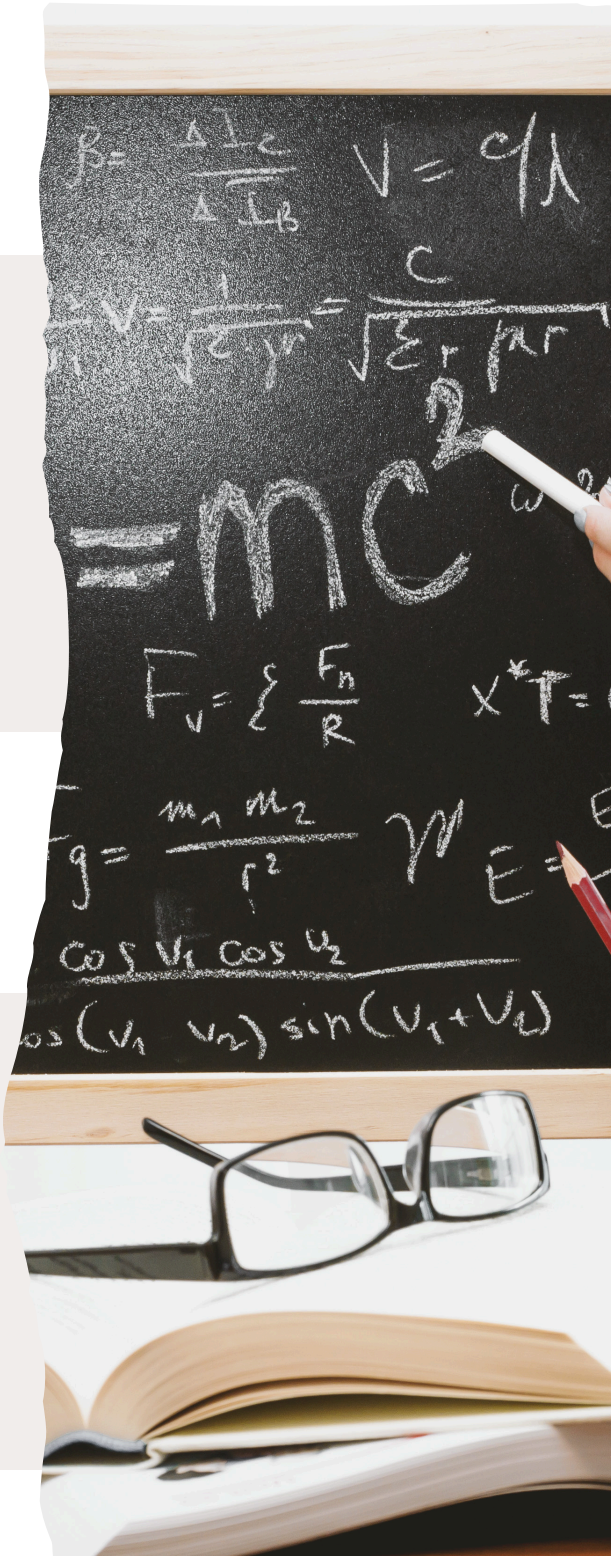 β= ΔI_C/ΔI_B V = c/λ
V= 1/√ε·μ = C/√ε_r μ_r
=mc²
ω
F_v= { F_n/R x*T=
g= m_1 m_2/r² E=
cos v_1 cos v_2
os (v_1 v_2) sin (v_1+v_2)